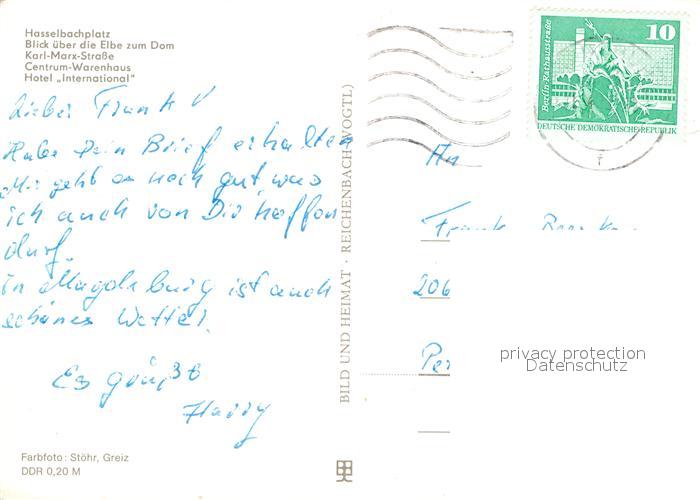 Hasselbachplatz
Blick über die Elbe zum Dom
Karl-Marx-Straße
Centrum-Warenhaus
Hotel „International“
Lieber Frank!
Habe Dein Brief erhalten
Mir geht es noch gut, was
ich auch von Dir hoffen
darf.
in Magdeburg ist auch
schönes Wetter.
Es grüßt
Harry
Farbfoto: Stöhr, Greiz
DDR 0,20 M
BILD UND HEIMAT · REICHENBACH (VOGTL)
Berlin-Rathausstraße
10
DEUTSCHE DEMOKRATISCHE REPUBLIK
An
Frank
206
Per
privacy protection
Datenschutz